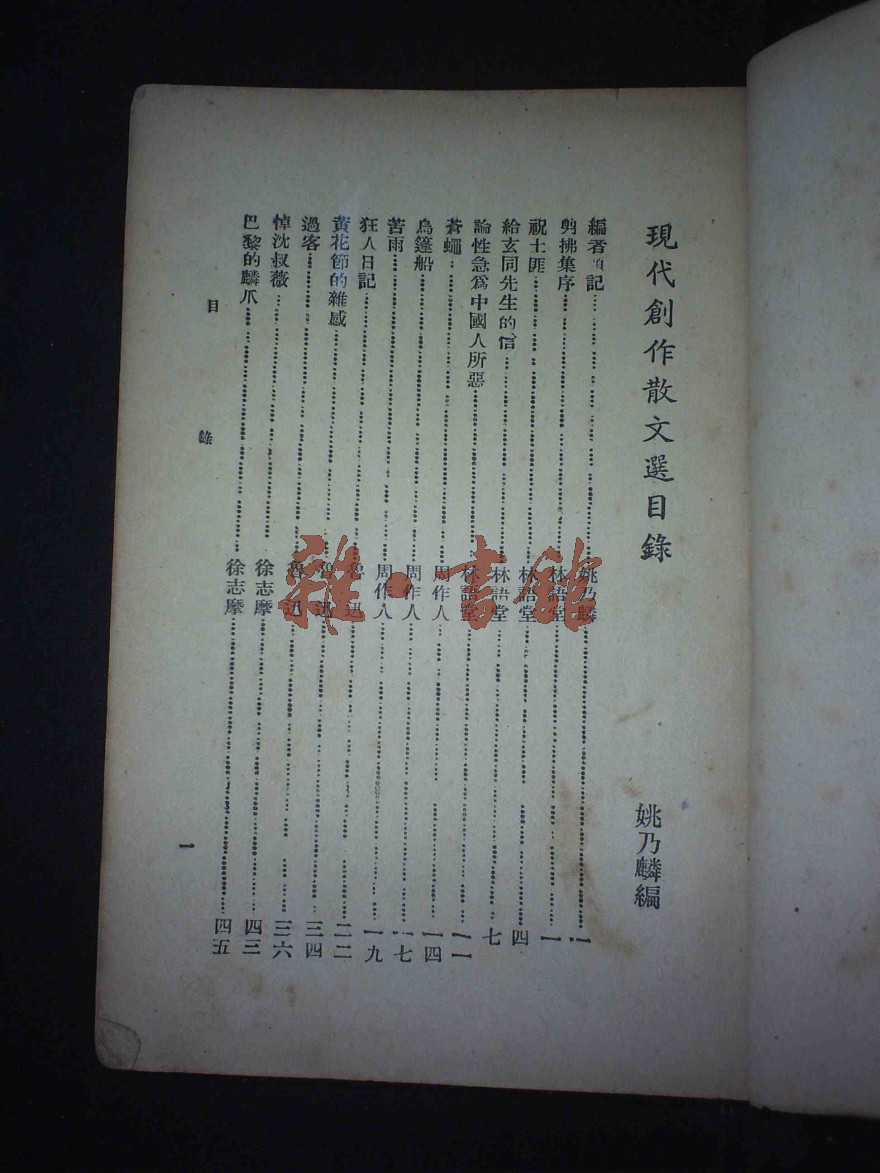 現代創作散文選目錄
姚乃麟編
編者題記……姚乃麟……一
剪拂集序……林語堂……一
祝土匪……林語堂……四
給玄同先生的信……林語堂……七
論性急爲中國人所惡……林語堂……一一
蒼蠅……周作人……一四
烏篷船……周作人……一七
苦雨……周作人……一九
狂人日記……魯迅……二二
黃花節的雜感……魯迅……三四
過客……魯迅……三六
悼沈叔薇……徐志摩……四三
巴黎的鱗爪……徐志摩……四五
目錄
一
雅·書館